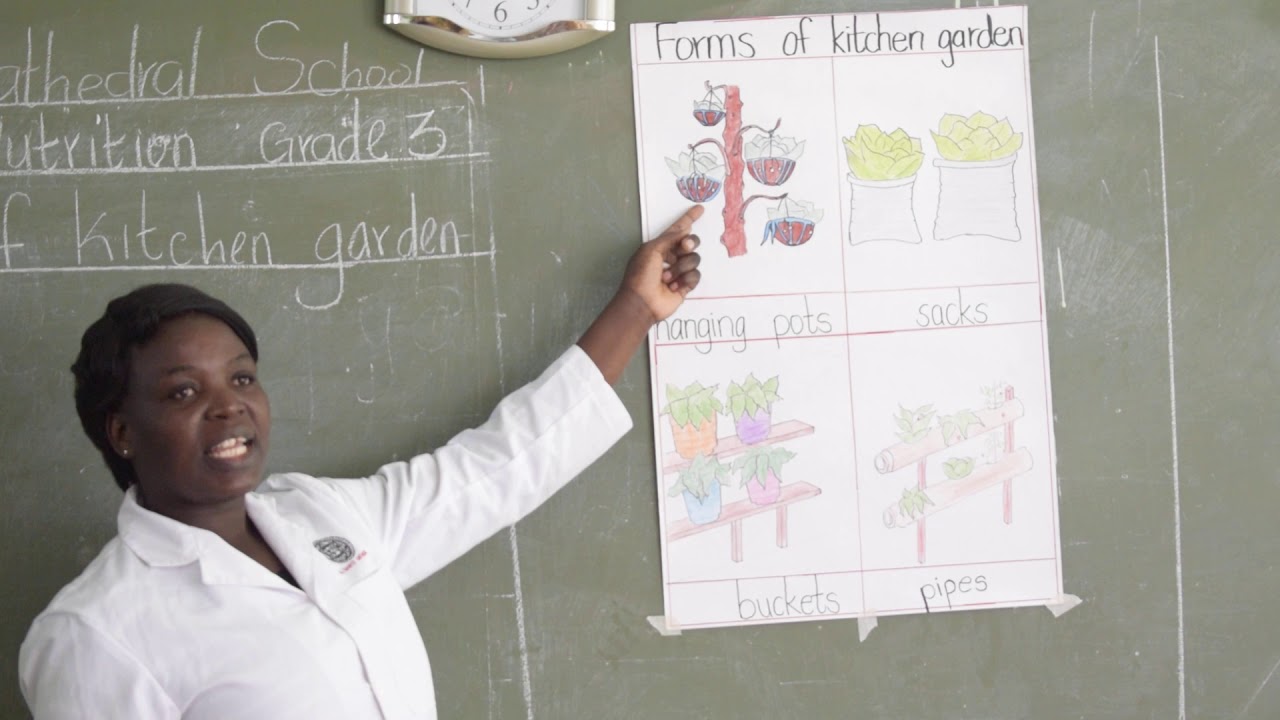 athedral School
Nutrition Grade 3
f kitchen garden
6
Forms of kitchen garden
hanging pots
sacks
buckets
pipes